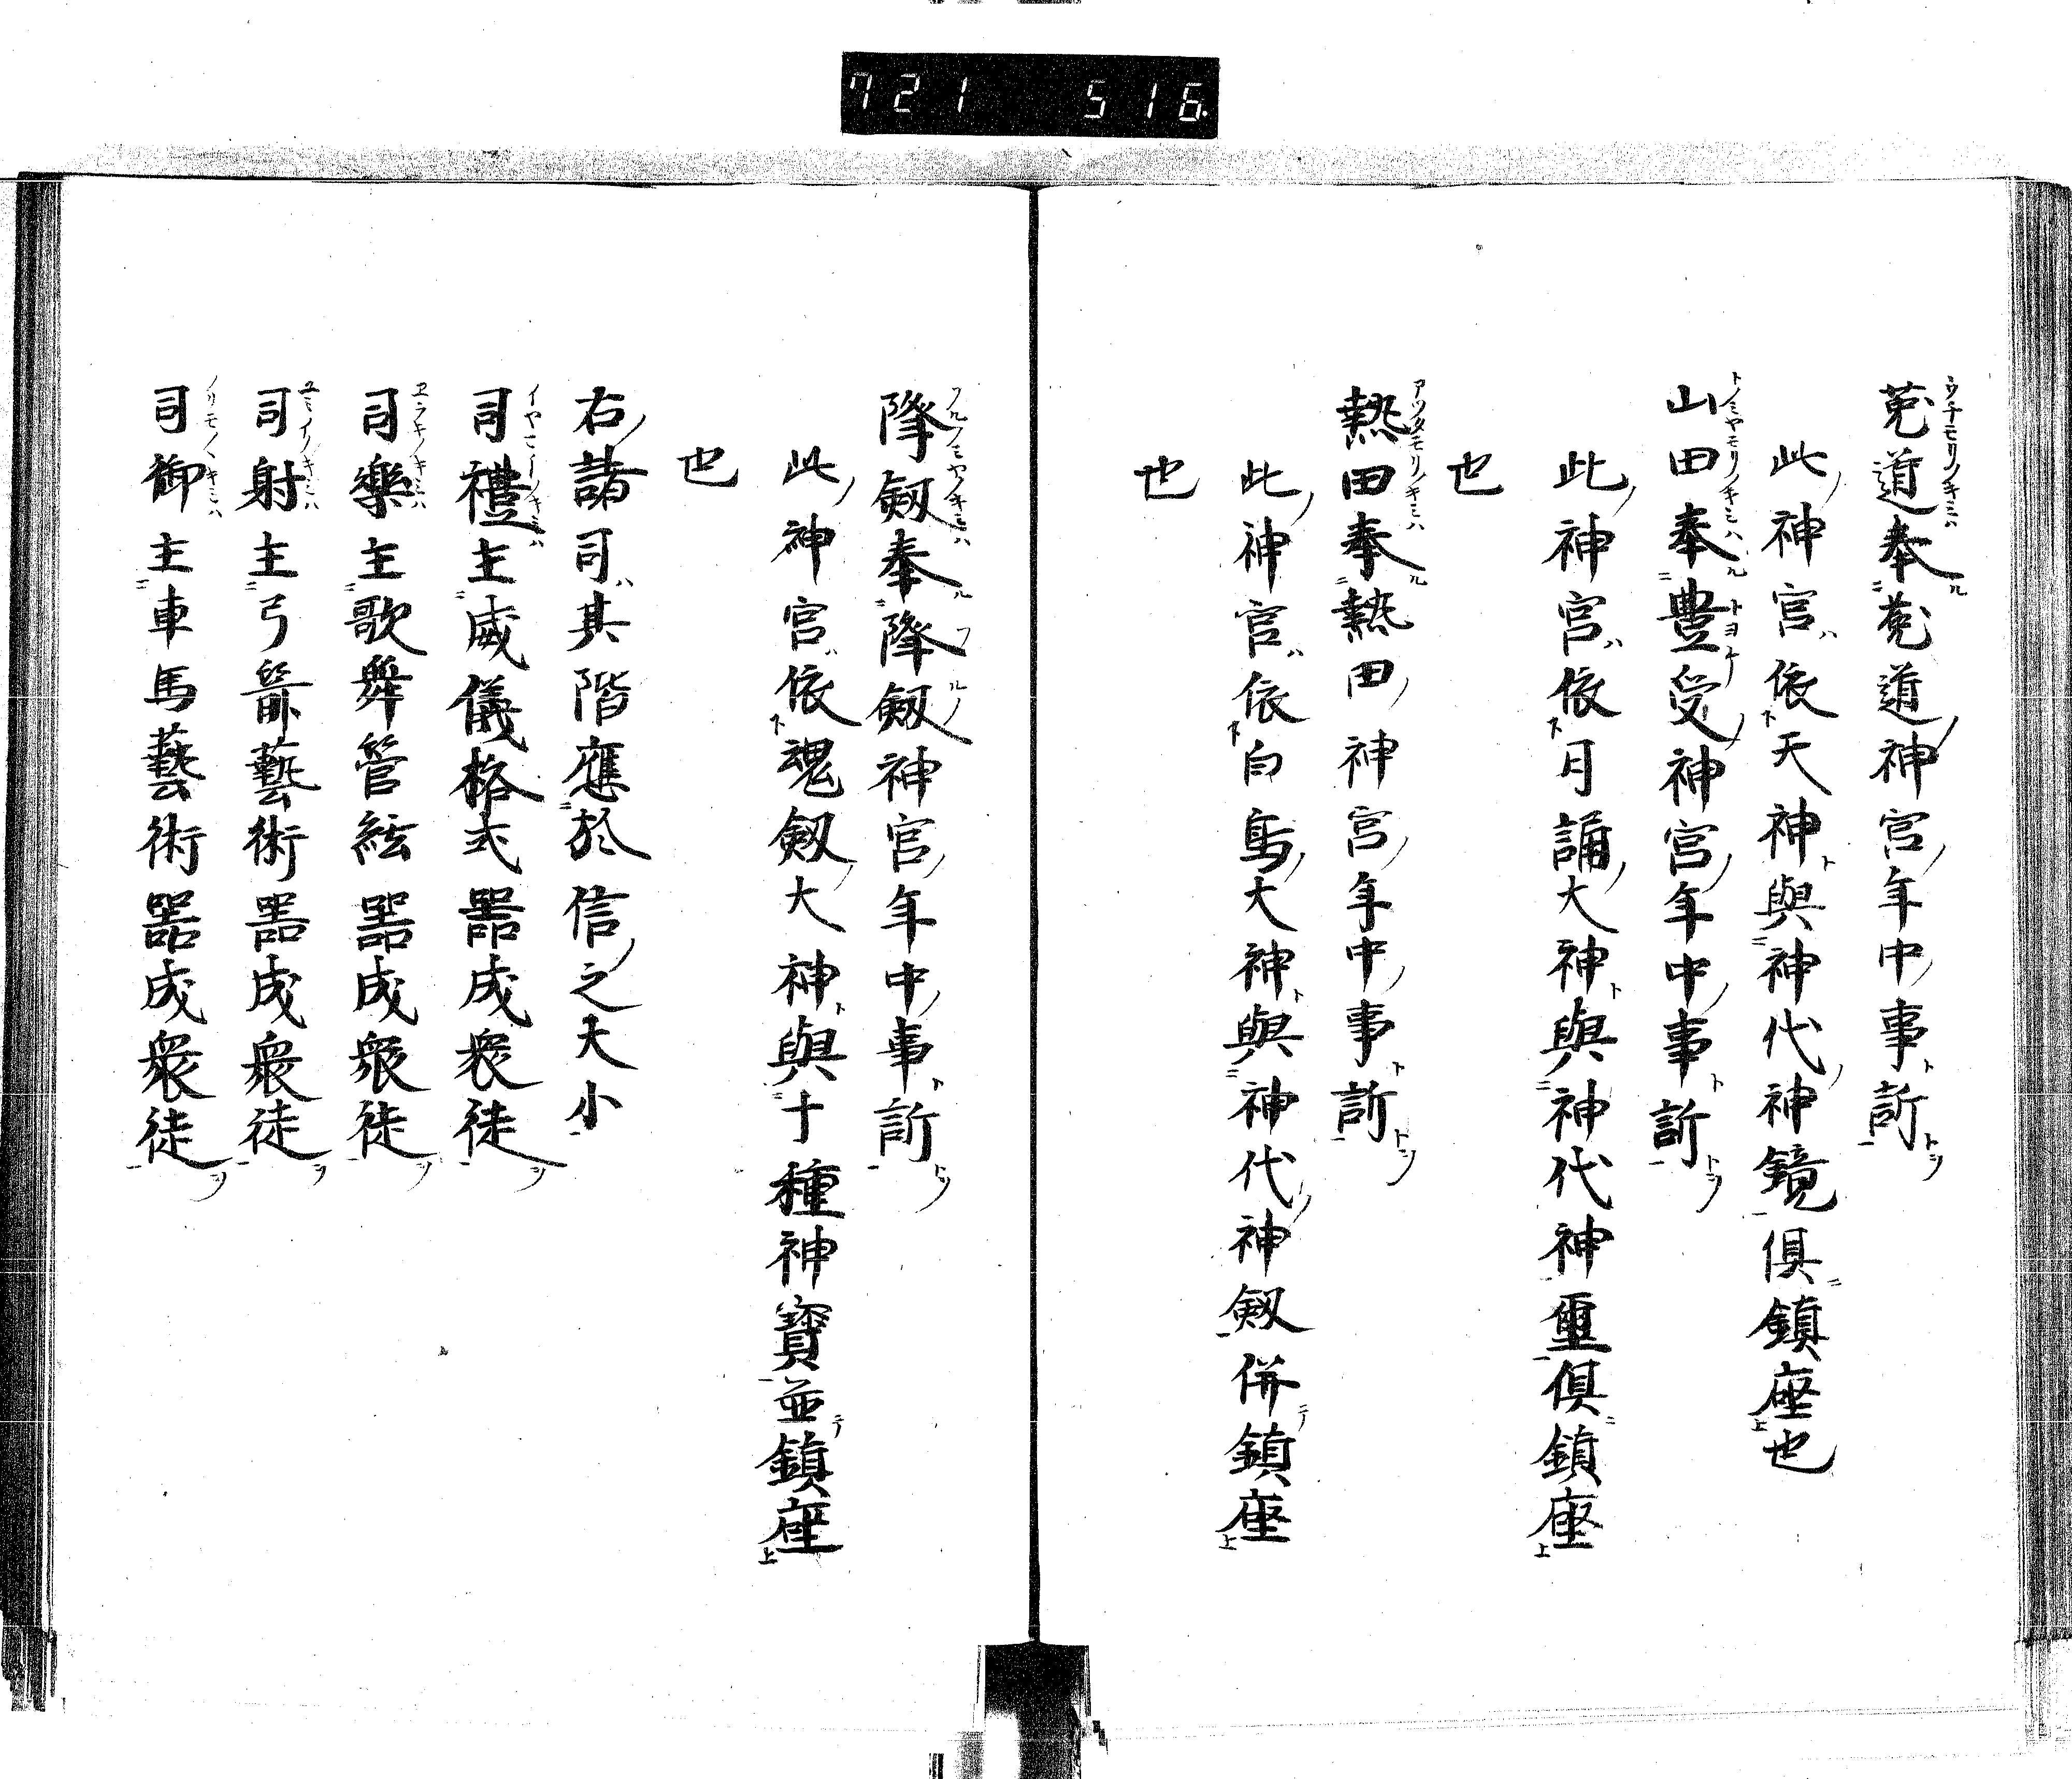 721 516.
菟道奉菟道神宮年中事訢
此神宮依天神與神代神鏡俱鎮座也
山田奉豊受神宮年中事訢
此神宮依月誦大神與神代神璽俱鎮座
也
熱田奉熱田神宮年中事訢
此神宮依白鳥大神與神代神劔併鎮座
也
降劔奉降劔神宮年中事訢
此神宮依魂劔大神與十種神寶並鎮座
也
右諸司其階應於信之大小
司禮主威儀格式噐成衆徒
司樂主歌舞管絃噐成衆徒
司射主弓箭藝術噐成衆徒
司御主車馬藝術噐成衆徒